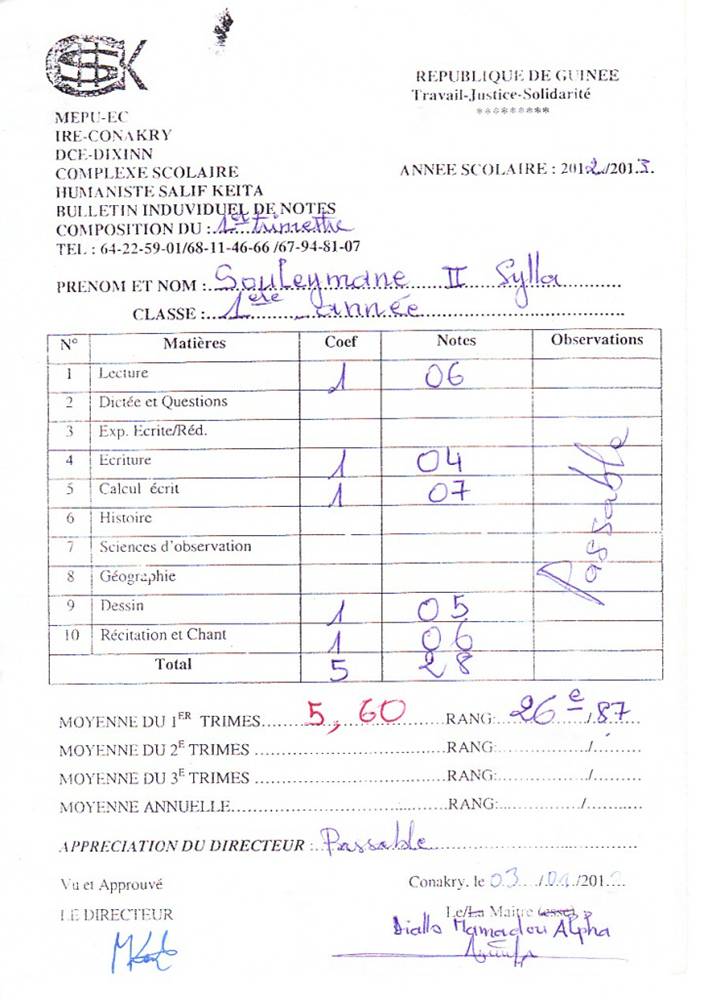 HSK
REPUBLIQUE DE GUINEE
Travail-Justice-Solidarité
*********
MEPU-EC
IRE-CONAKRY
DCE-DIXINN
COMPLEXE SCOLAIRE
HUMANISTE SALIF KEITA
ANNEE SCOLAIRE : 2012/2013.
BULLETIN INDUVIDUEL DE NOTES
COMPOSITION DU : 1er trimestre
TEL : 64-22-59-01/68-11-46-66 /67-94-81-07
PRENOM ET NOM : Souleymane II Sylla
CLASSE : 1ère année
N° Matières Coef Notes Observations
1 Lecture 1 06
2 Dictée et Questions
3 Exp. Ecrite/Réd.
4 Ecriture 1 04
5 Calcul écrit 1 07
6 Histoire
7 Sciences d'observation
8 Géographie
9 Dessin 1 05
10 Récitation et Chant 1 06
Total 5 28
Passable
MOYENNE DU 1ER TRIMES... 5,60 ...RANG: 26e/87
MOYENNE DU 2E TRIMES ...RANG:.../...
MOYENNE DU 3E TRIMES ...RANG:.../...
MOYENNE ANNUELLE...RANG:.../...
APPRECIATION DU DIRECTEUR : Passable
Vu et Approuvé
Conakry, le 03/01/201
LE DIRECTEUR
Le/La Maitre (esse)
Diallo Mamadou Alpha